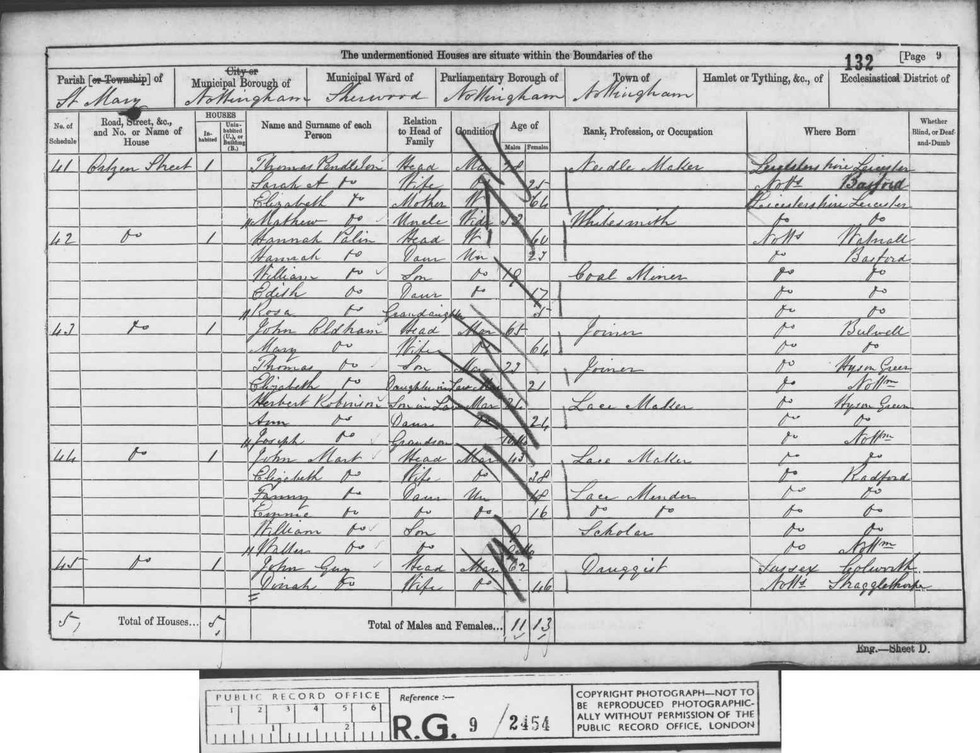 The undermentioned Houses are situate within the Boundaries of the
132 [Page 9
Parish [or Township] of St Mary
City or Municipal Borough of Nottingham
Municipal Ward of Sherwood
Parliamentary Borough of Nottingham
Town of Nottingham
Hamlet or Tything, &c., of
Ecclesiastical District of
No. of Schedule
Road, Street, &c., and No. or Name of House
HOUSES
Inhabited
Uninhabited (U.), or Building (B.)
Name and Surname of each Person
Relation to Head of Family
Condition
Age of
Males Females
Rank, Profession, or Occupation
Where Born
Whether Blind, or Deaf-and-Dumb
41 Street 1 Thomas Pendleton Head Mar 28 Needle Maker Leicestershire Leicester
Sarah A do Wife do 25 Notts Basford
Elizabeth do Mother W 64 Leicestershire Leicester
Mathew do Uncle Widr 52 Whitesmith do do
42 do 1 Hannah Palin Head W 60 Notts Watnall
Hannah do Daur Un 23 do Basford
William do Son do 19 Coal Miner do do
Edith do Daur do 17 do do
Rosa do Grandaughter 5 do do
43 do 1 John Oldham Head Mar 65 Joiner do Bulwell
Mary do Wife do 64 do do
Thomas do Son Mar 22 Joiner do Hyson Green
Elizabeth do Daughter in Law Mar 21 do Nottm
Herbert Robinson Son in Law Mar Lace Maker do Hyson Green
Ann do Daur 24 do do
Joseph do Grandson do Nottm
44 do 1 John Mart Head Mar 43 Lace Maker do do
Elizabeth do Wife do 38 do Radford
Fanny do Daur Un 18 Lace Mender do do
do do do 16 do do do do
William do Son Scholar do do
Walter do do do Nottm
45 do 1 John Guy Head Mar 62 Druggist Sussex
Dinah do Wife do 46 Notts Stragglethorpe
5 Total of Houses... 5 Total of Males and Females... 11 13
Eng.—Sheet D.
PUBLIC RECORD OFFICE
1 2 3 4 5 6
1 2
Reference :—
R.G. 9 / 2454
COPYRIGHT PHOTOGRAPH—NOT TO
BE REPRODUCED PHOTOGRAPHIC-
ALLY WITHOUT PERMISSION OF THE
PUBLIC RECORD OFFICE, LONDON